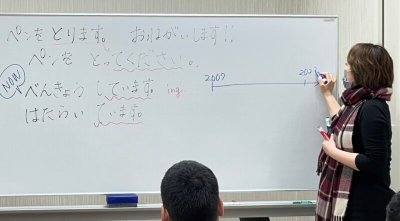 ペンをとります。 おねがいします!
ペンを とってください。
NOW
べんきょう しています。 ing
はたらい ています。
2007 202